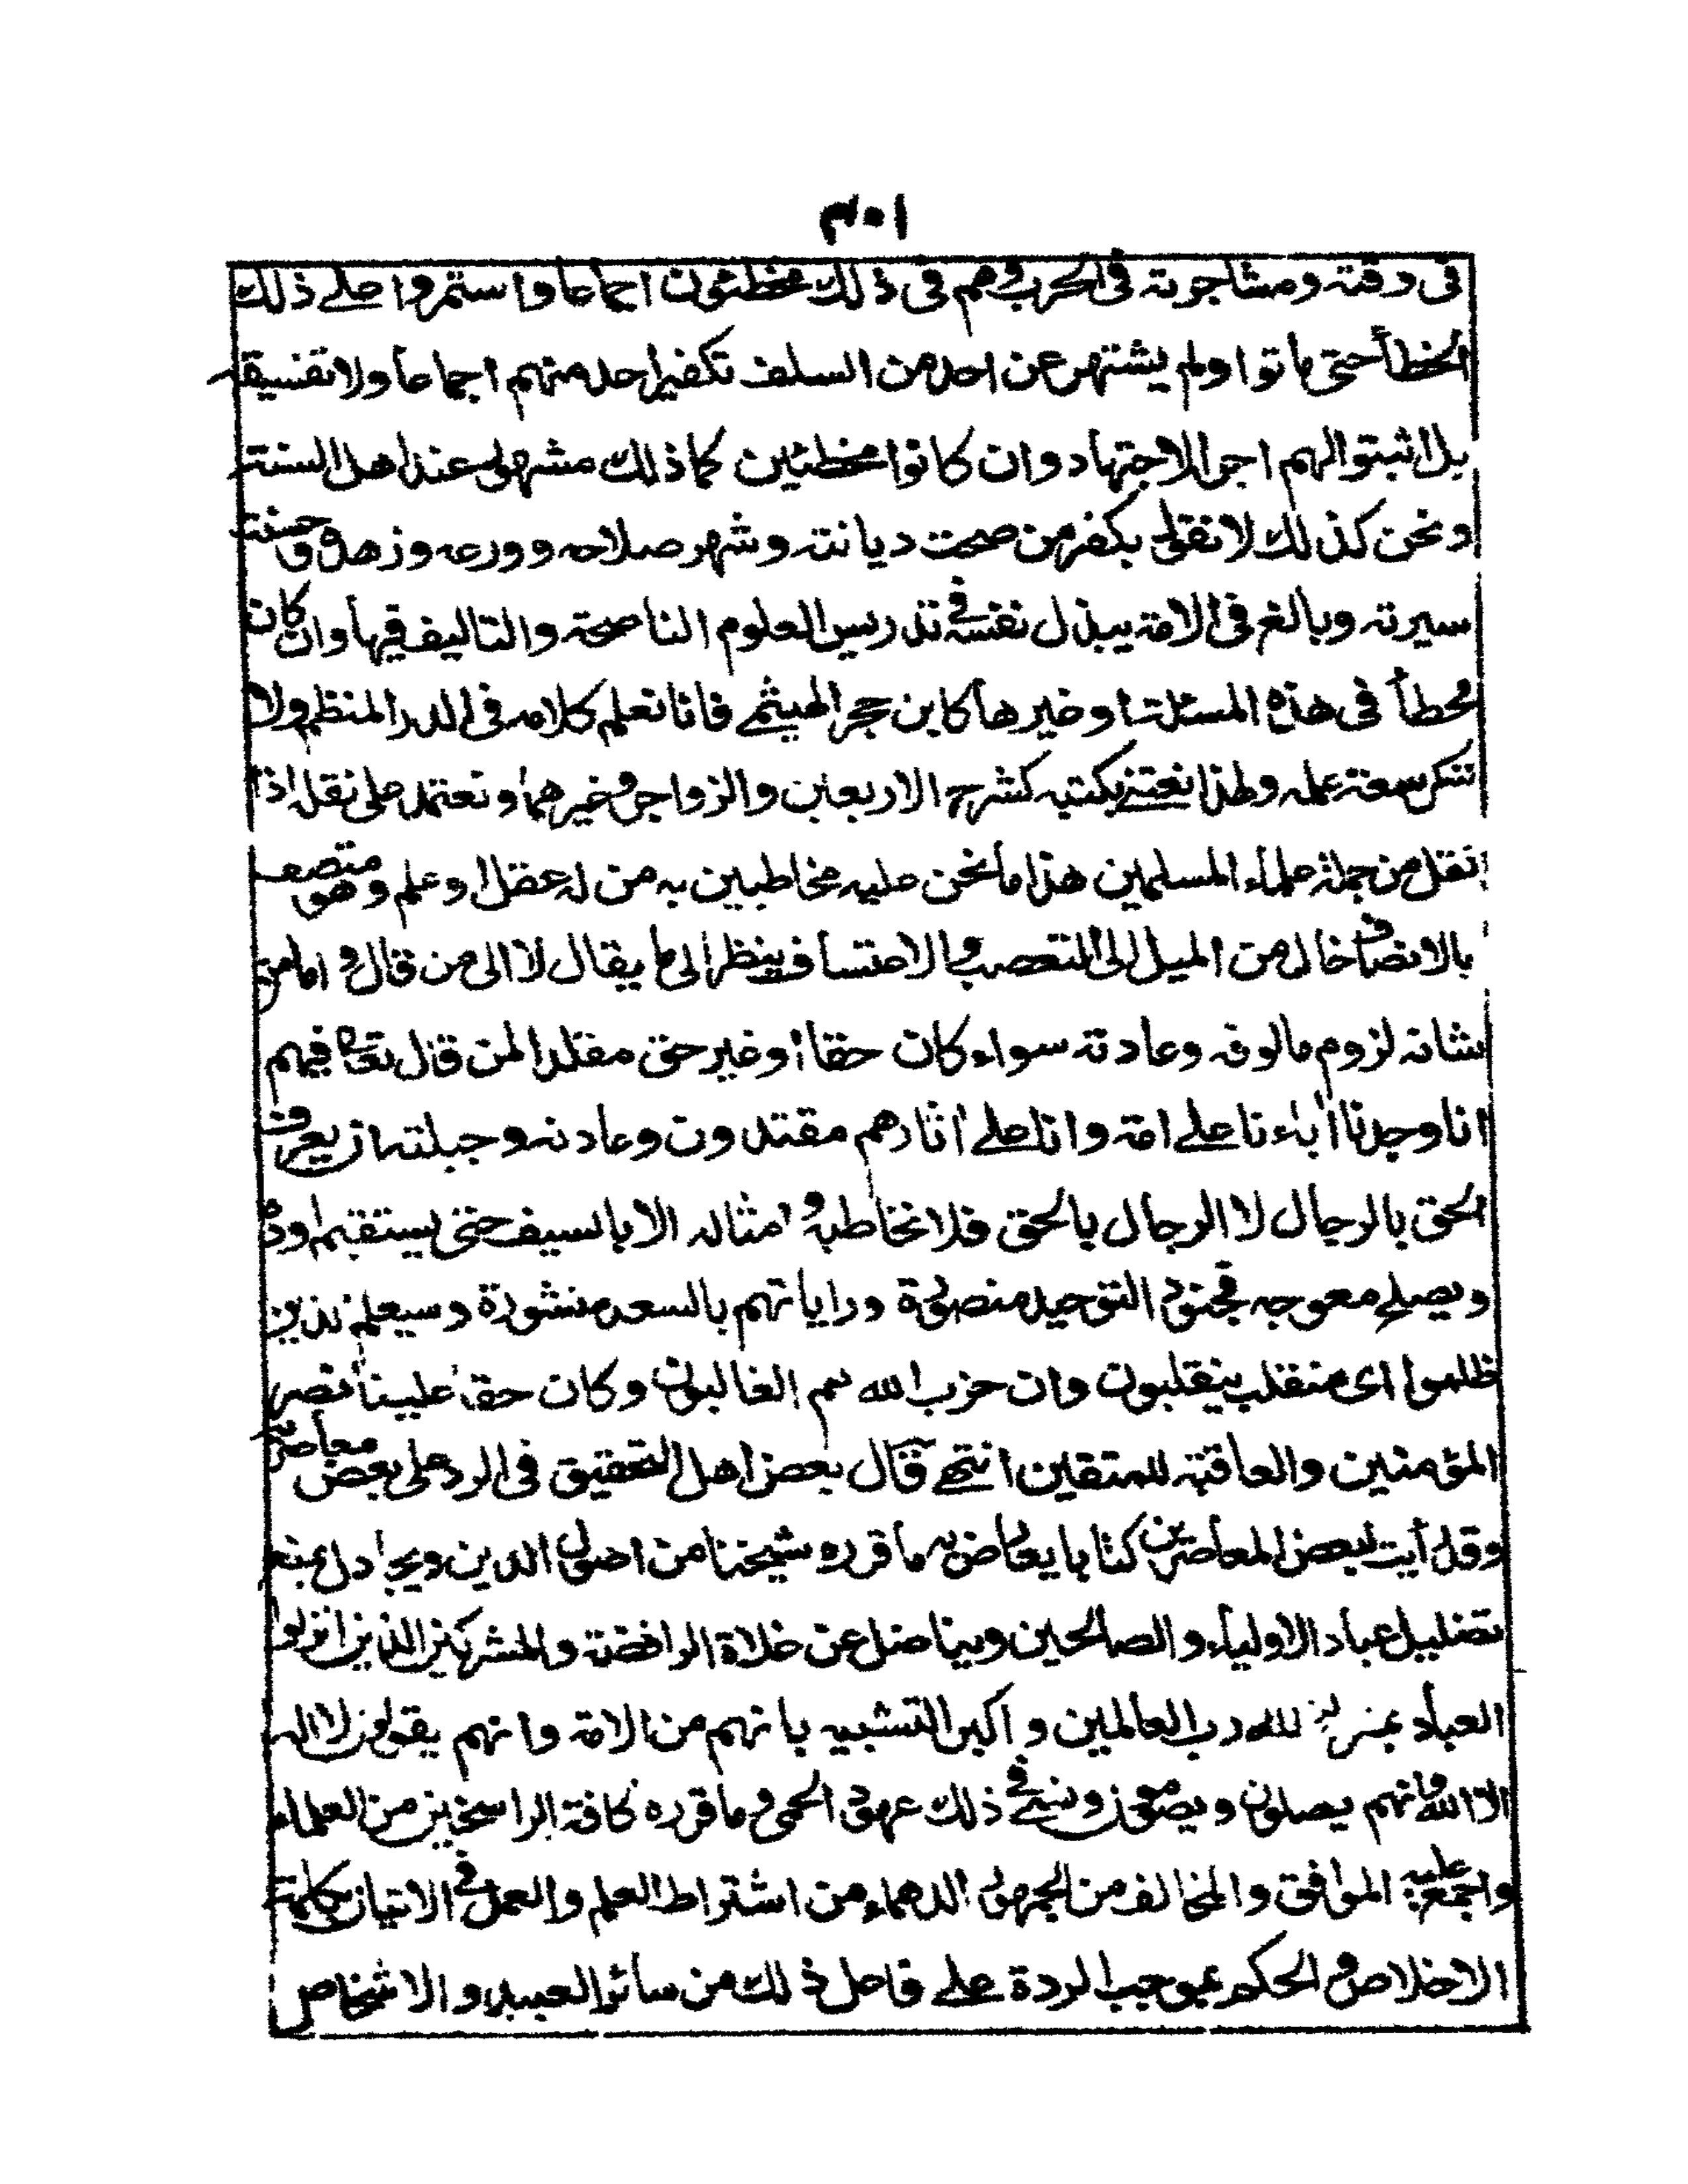 ٣٠١
فى وقته ومشاجرته فى الحرب وهم فى ذلك مخطئون اجماعا واستمروا على ذلك
الخطأ حتى ماتوا ولم يشتهر عن احد من السلف تكفير احد منهم اجماعا ولا تفسيقه
بل اثبتوا لهم اجر الاجتهاد وان كانوا مخطئين كما ذلك مشهور عند اهل السنة
ونحن كذلك لا نقول بكفر من صحت ديانته وشهر صلاحه وورعه وزهده وحسنت
سيرته وبالغ فى الامة ببذل نفسه فى تدريس العلوم الناصحة والتاليف فيها وان كان
مخطأ فى هذه المسئلة او غيرها كابن حجر الهيثمى فانا نعلم كلامه فى الدر المنظم ولا
ننكر سعة علمه ولهذا نعتنى بكتبه كشرح الاربعين والزواجر وغيرهما ونعتمد على نقله اذا
نقل من جملة علماء المسلمين هذا ما نحن عليه مخاطبين به من له عقل او علم وهو متصف
بالانصاف خال من الميل الى التعصب والاعتساف ينظر الى ما يقال لا الى من قال واما من
شانه لزوم مالوفه وعادته سواء كان حقا او غير حق مقلدا لمن قال تعالى فيهم
انا وجدنا اباءنا على امة وانا على اثارهم مقتدون وعادته وجبلته ان يعرف
الحق بالرجال لا الرجال بالحق فلا نخاطبه وامثاله الا بالسيف حتى يستقيم اوده
ويصلح معوجه فجنود التوحيد منصورة وراياتهم بالسعد منشورة وسيعلم الذين
ظلموا اى منقلب ينقلبون وان حزب الله هم الغالبون وكان حقا علينا نصر
المؤمنين والعاقبة للمتقين انتهى قال بعض اهل التحقيق فى الرد على بعض معاصريه
وقد رأيت لبعض المعاصرين كتابا يعارض به ما قرره شيخنا من اصول الدين ويجادل بمنع
تضليل عباد الاولياء والصالحين ويناضل عن غلاة الرافضة والمشركين الذين انزلوا
العباد بمنزلة الله رب العالمين واكبر التشبيه بانهم من الامة وانهم يقولون لا اله
الا الله وانهم يصلون ويصومون ونسى فى ذلك عهود الحمى وما قرره كافة الراسخين من العلماء
واجمع عليه الموافق والمخالف من الجمهور الدهماء من اشتراط العلم والعمل فى الاتيان بكلمة
الاخلاص والحكم بموجب الردة على فاعل ذلك من سائر العبيد والاشخاص